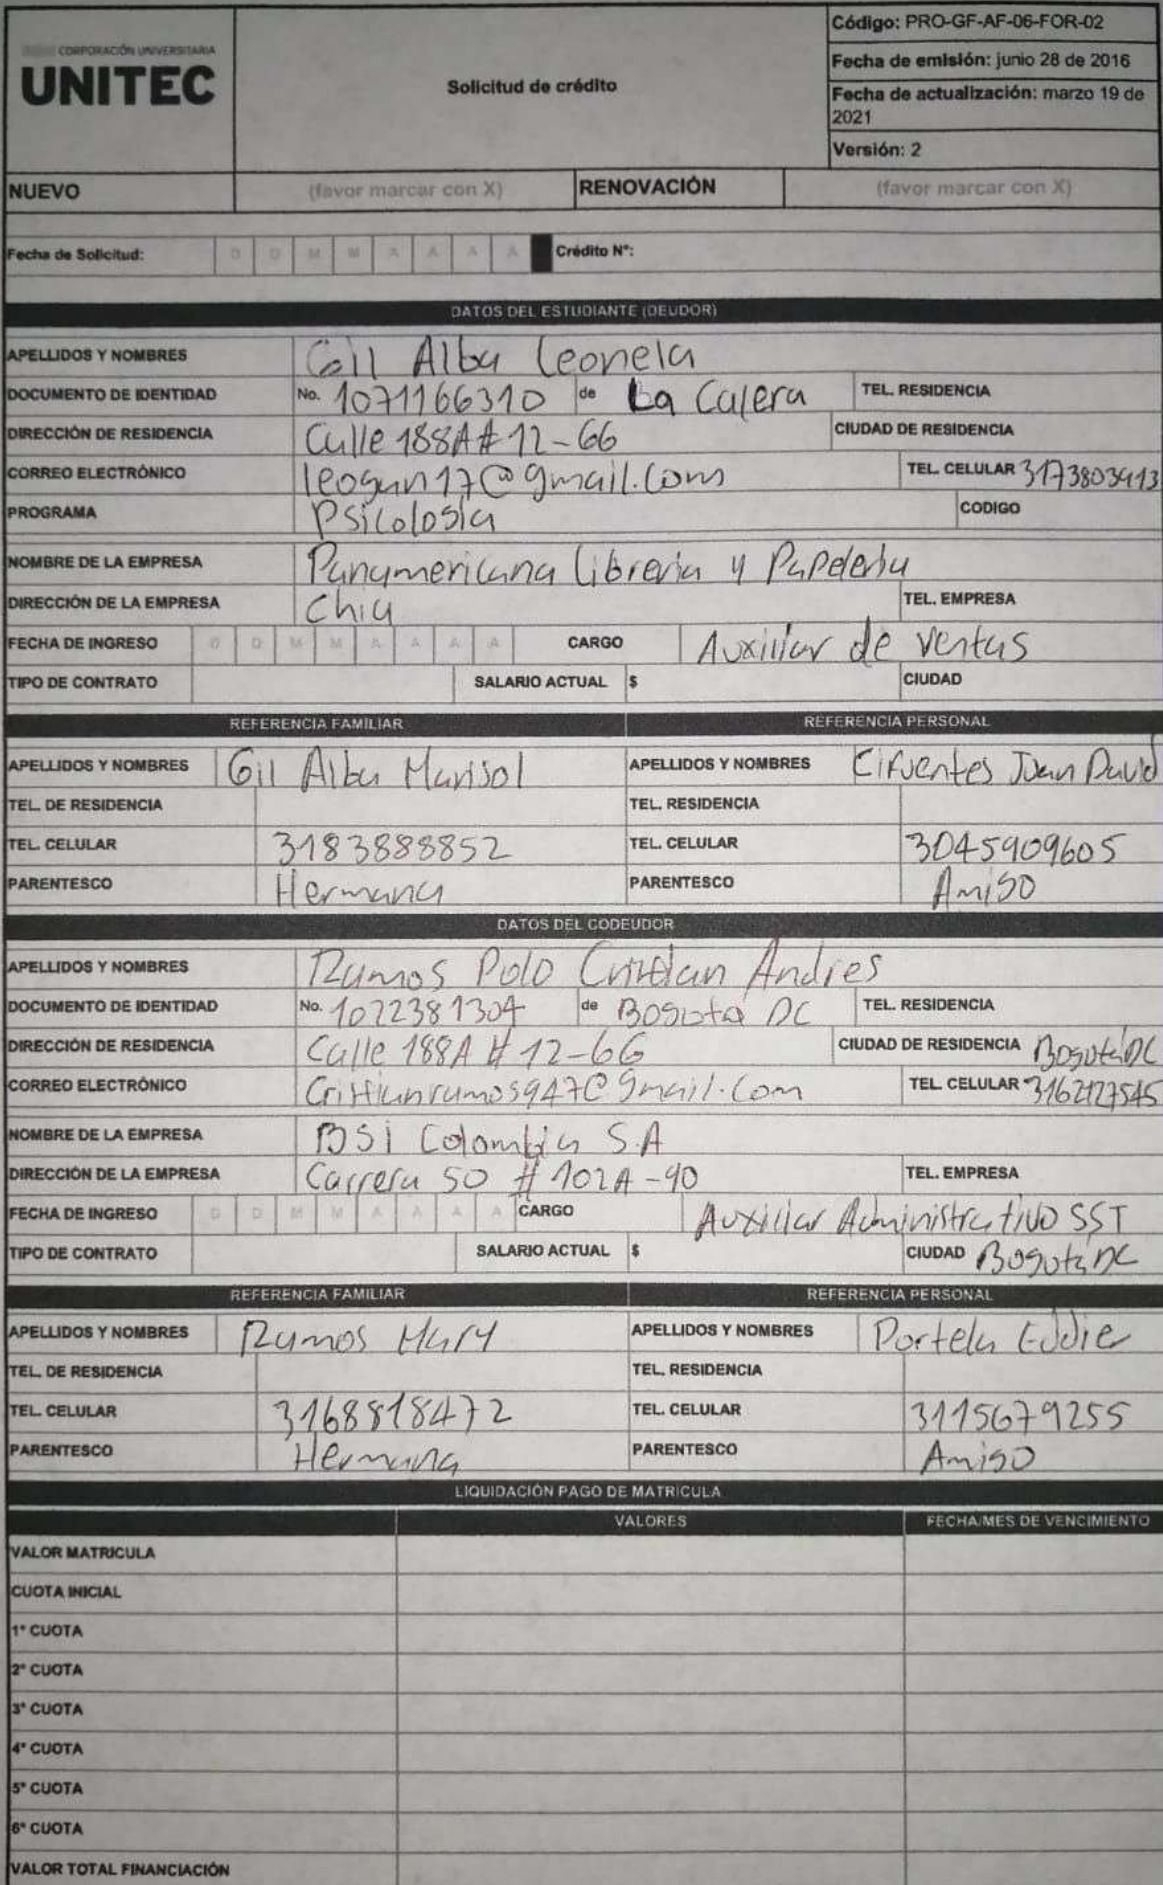 CORPORACIÓN UNIVERSITARIA
UNITEC
Solicitud de crédito
Código: PRO-GF-AF-06-FOR-02
Fecha de emisión: junio 28 de 2016
Fecha de actualización: marzo 19 de
2021
Versión: 2
NUEVO (favor marcar con X) RENOVACIÓN (favor marcar con X)
Fecha de Solicitud: D D M M A A A A Crédito N°:
DATOS DEL ESTUDIANTE (DEUDOR)
APELLIDOS Y NOMBRES Gil Alba Leonela
DOCUMENTO DE IDENTIDAD No. 1071166310 de La Calera TEL. RESIDENCIA
DIRECCIÓN DE RESIDENCIA Calle 188A # 12-66 CIUDAD DE RESIDENCIA
CORREO ELECTRÓNICO leogun17@gmail.com TEL. CELULAR 3173803413
PROGRAMA Psicología CODIGO
NOMBRE DE LA EMPRESA Panamericana libreria y Papeleria
DIRECCIÓN DE LA EMPRESA Chia TEL. EMPRESA
FECHA DE INGRESO D D M M A A A A CARGO Auxiliar de ventas
TIPO DE CONTRATO SALARIO ACTUAL $ CIUDAD
REFERENCIA FAMILIAR REFERENCIA PERSONAL
APELLIDOS Y NOMBRES Gil Alba Marisol APELLIDOS Y NOMBRES Cifuentes Juan David
TEL. DE RESIDENCIA TEL. RESIDENCIA
TEL. CELULAR 3183888852 TEL. CELULAR 3045909605
PARENTESCO Hermana PARENTESCO Amigo
DATOS DEL CODEUDOR
APELLIDOS Y NOMBRES Ramos Polo Cristian Andres
DOCUMENTO DE IDENTIDAD No. 1022381304 de Bogotá DC TEL. RESIDENCIA
DIRECCIÓN DE RESIDENCIA Calle 188A # 12-66 CIUDAD DE RESIDENCIA Bogotá DC
CORREO ELECTRÓNICO Cristianramos947@gmail.com TEL. CELULAR 3162127545
NOMBRE DE LA EMPRESA BSI Colombia S.A
DIRECCIÓN DE LA EMPRESA Carrera 50 # 102A-90 TEL. EMPRESA
FECHA DE INGRESO D D M M A A A A CARGO Auxiliar Administrativo SST
TIPO DE CONTRATO SALARIO ACTUAL $ CIUDAD Bogotá DC
REFERENCIA FAMILIAR REFERENCIA PERSONAL
APELLIDOS Y NOMBRES Ramos Mary APELLIDOS Y NOMBRES Portela Eddie
TEL. DE RESIDENCIA TEL. RESIDENCIA
TEL. CELULAR 3168818472 TEL. CELULAR 3115679255
PARENTESCO Hermana PARENTESCO Amigo
LIQUIDACIÓN PAGO DE MATRICULA
VALORES FECHA/MES DE VENCIMIENTO
VALOR MATRICULA
CUOTA INICIAL
1° CUOTA
2° CUOTA
3° CUOTA
4° CUOTA
5° CUOTA
6° CUOTA
VALOR TOTAL FINANCIACIÓN